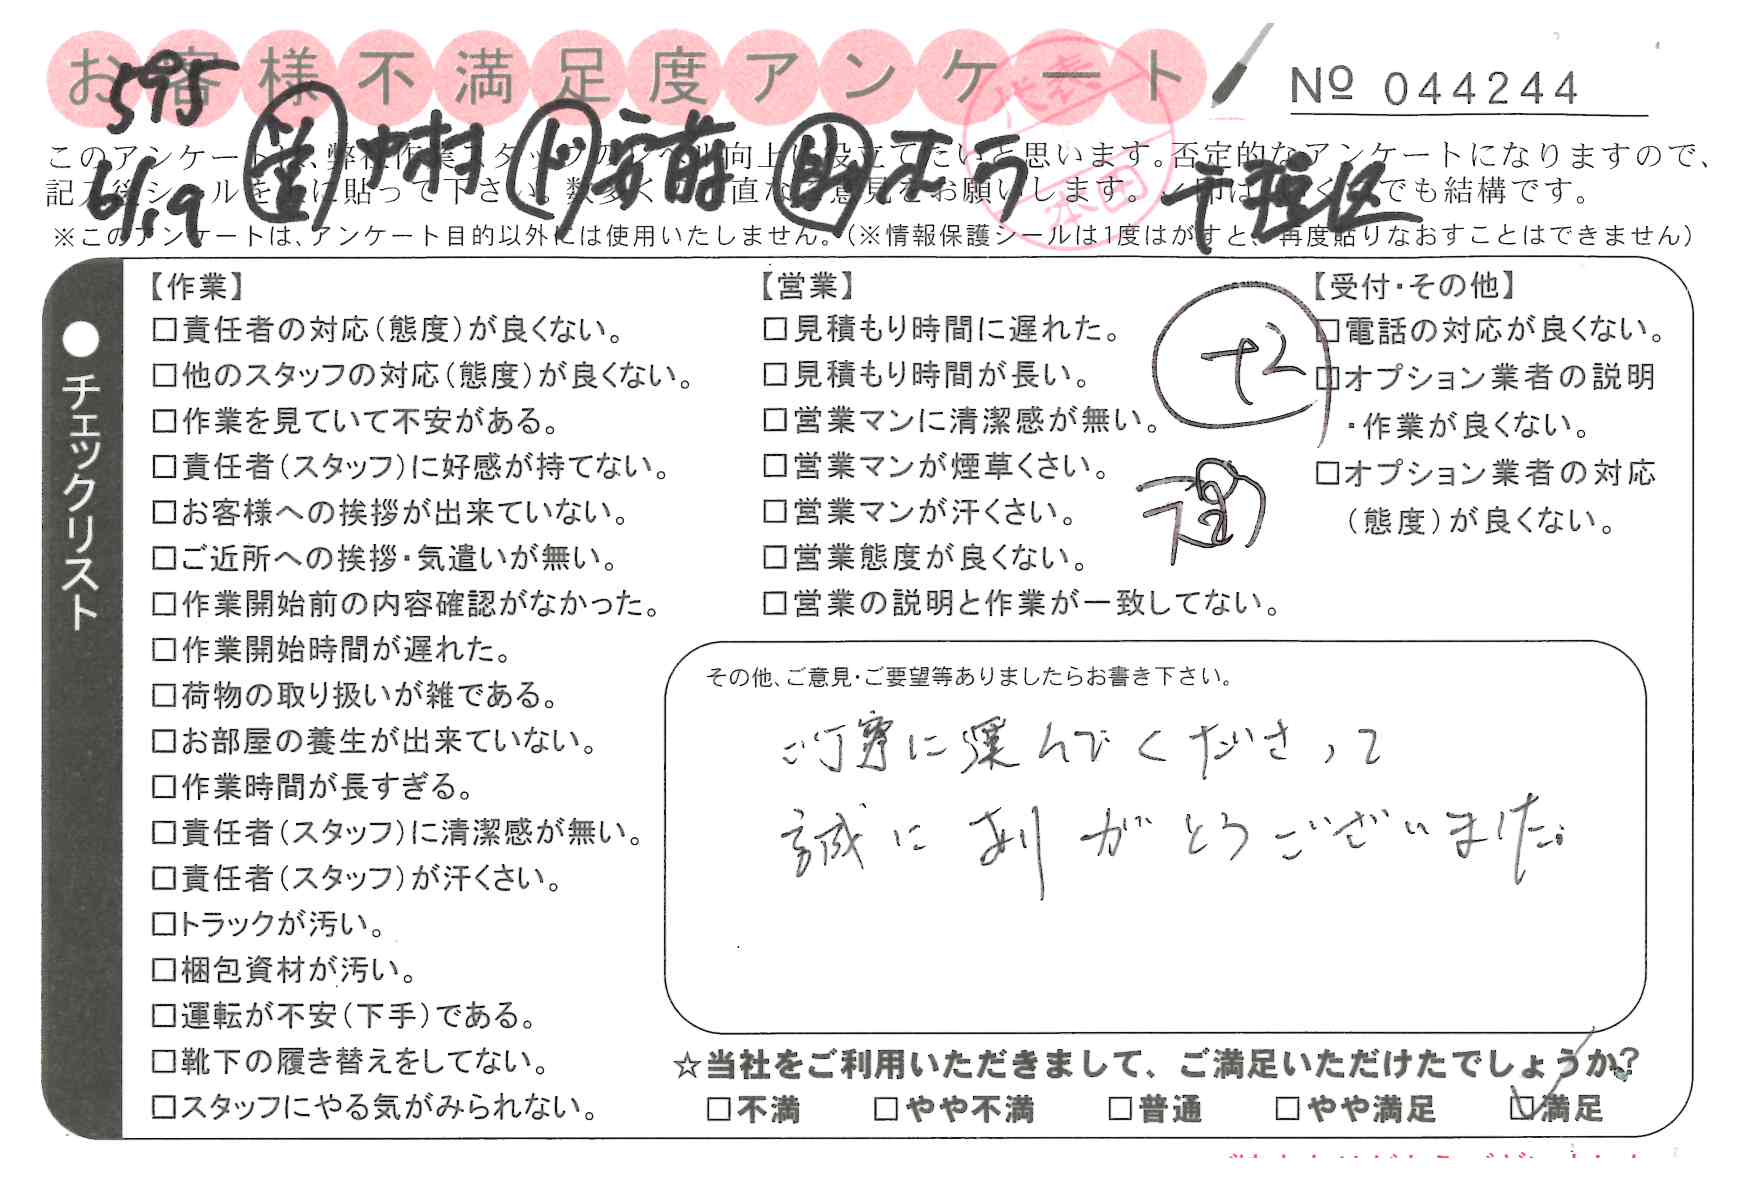 お客様不満足度アンケート
№ 044244
595
6/19 営 中村 ド 安前 助 むら 千種区
代表 本田
このアンケートは、弊社作業スタッフのレベル向上に役立てたいと思います。否定的なアンケートになりますので、
記入後シールを上に貼って下さい。数多くの正直なご意見をお願いします。レ印はいくつでも結構です。
※このアンケートは、アンケート目的以外には使用いたしません。(※情報保護シールは1度はがすと、再度貼りなおすことはできません)
●チェックリスト
【作業】
□責任者の対応(態度)が良くない。
□他のスタッフの対応(態度)が良くない。
□作業を見ていて不安がある。
□責任者(スタッフ)に好感が持てない。
□お客様への挨拶が出来ていない。
□ご近所への挨拶・気遣いが無い。
□作業開始前の内容確認がなかった。
□作業開始時間が遅れた。
□荷物の取り扱いが雑である。
□お部屋の養生が出来ていない。
□作業時間が長すぎる。
□責任者(スタッフ)に清潔感が無い。
□責任者(スタッフ)が汗くさい。
□トラックが汚い。
□梱包資材が汚い。
□運転が不安(下手)である。
□靴下の履き替えをしてない。
□スタッフにやる気がみられない。
【営業】
□見積もり時間に遅れた。
□見積もり時間が長い。
□営業マンに清潔感が無い。
□営業マンが煙草くさい。
□営業マンが汗くさい。
□営業態度が良くない。
□営業の説明と作業が一致してない。
+2
【受付・その他】
□電話の対応が良くない。
□オプション業者の説明
・作業が良くない。
□オプション業者の対応
(態度)が良くない。
その他、ご意見・ご要望等ありましたらお書き下さい。
ご丁寧に運んでくださって
誠にありがとうございました。
☆当社をご利用いただきまして、ご満足いただけたでしょうか?
□不満 □やや不満 □普通 □やや満足 ☑満足